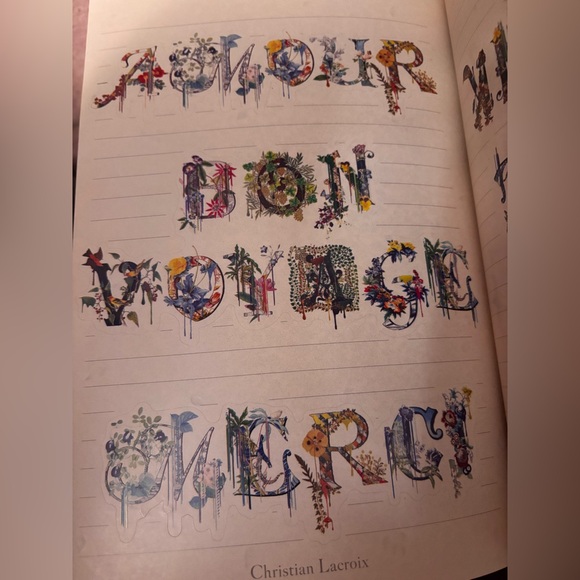 AMOUR
BON
VOYAGE
MERCI
Christian Lacroix